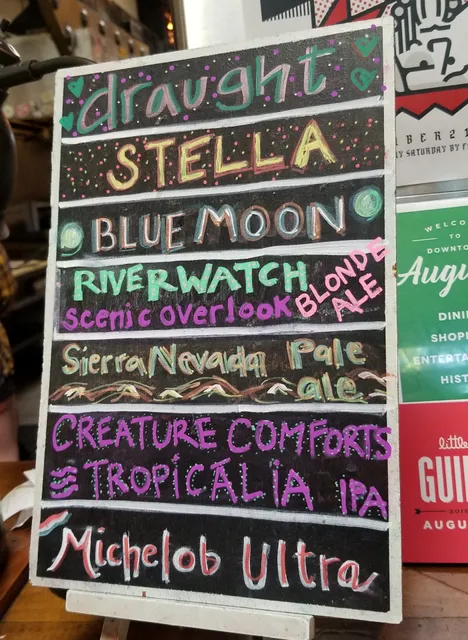 draught
STELLA
BLUE MOON
RIVERWATCH
scenic overlook
BLONDE
ALE
Sierra Nevada Pale
ale
CREATURE COMFORTS
TROPICALIA IPA
Michelob Ultra
WELCO
TO
DOWNTO
Augu
DINI
SHOP
ENTERTA
HIST
little
GUI
AUGU